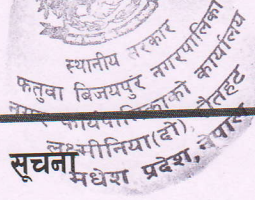 स्थानीय सरकार
फतुवा बिजयपुर नगरपालिका
नगर कार्यपालिकाको कार्यालय
लक्ष्मीनिया(दो), रौतहट
मधेश प्रदेश, नेपाल
सूचना